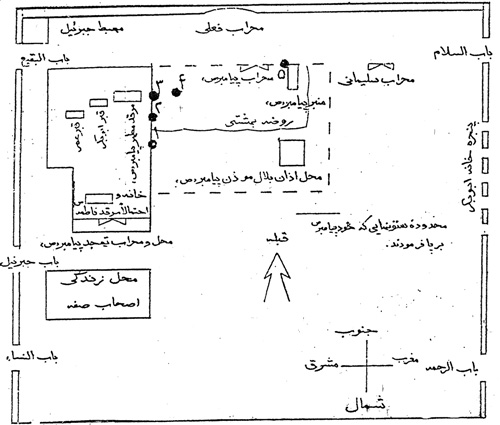 محراب فعلی
مهبط جبرئیل
باب السلام
باب البقیع
محراب سلیمانی
محراب پیامبر(ص)
۵
۴
۳
۲
۱
منبر پیامبر(ص)
روضه بهشتی
مرقد مطهر پیامبر(ص)
قبر ابوبکر
قبر عمر
پنجره خانه ابوبکر
محل اذان بلال موذن پیامبر(ص)
خانه و
احتمالاً مرقد فاطمه(س)
محدودهٔ ستونهایی که خود پیامبر(ص)
برپا فرمودند.
محل و محراب تهجد پیامبر(ص)
قبله
باب جبرئیل
محل زندگی
اصحاب صفه
باب النساء
جنوب
مغرب
مشرق
شمال
باب الرحمه